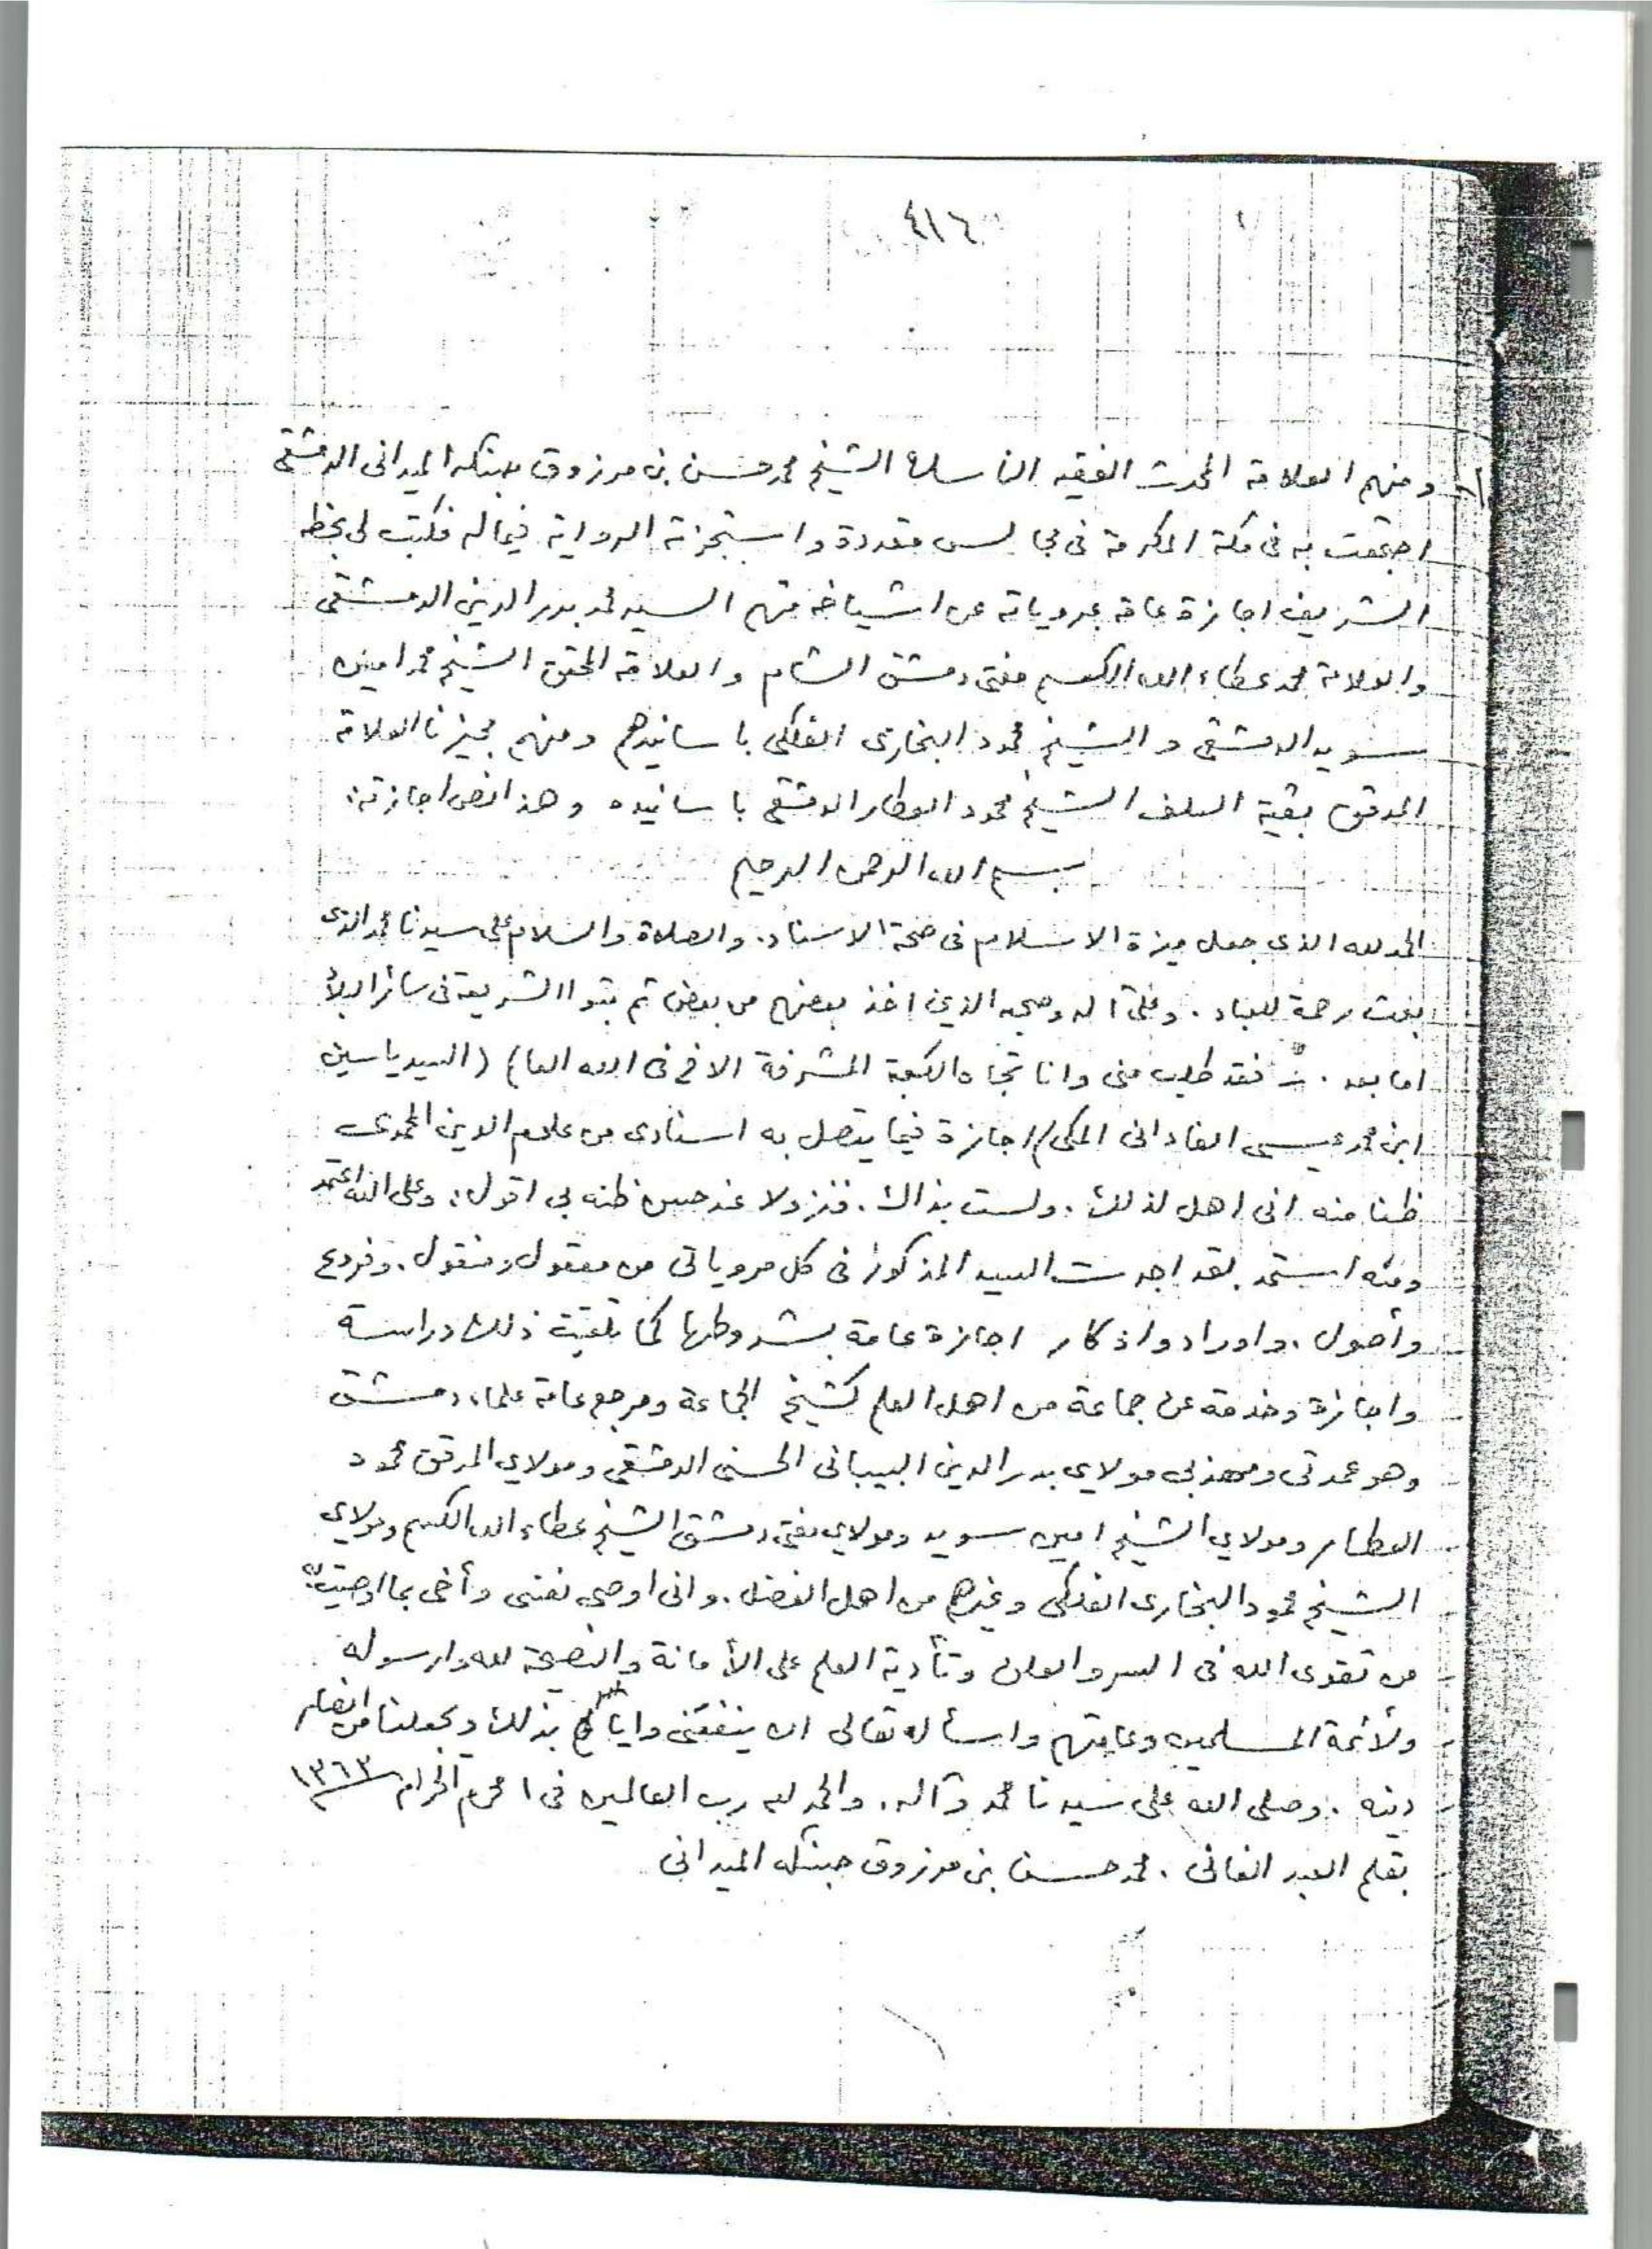 ٤١٦
ومنهم العلامة المحدث الفقيه الناسك الشيخ محمد حسن بن مرزوق حبنكه الميدانى الدمشقى
اجتمعت به فى مكة المكرمة فى مجالس متعددة واستجزته الرواية فيماله فكتب لى بخطه
الشريف اجازة عامة بمروياته عن اشياخه منهم السيد محمد بدر الدين الدمشقى
والعلامة محمد عطاء الله الكسم مفتى دمشق الشام والعلامة المحقق الشيخ محمد امين
سويد الدمشقى والشيخ محمود البخارى الفلكى باسانيدهم ومنهم مجيزنا العلامة
المدقق بقية السلف الشيخ محمود العطار الدمشقى باسانيده وهذا نص اجازته:
بسم الله الرحمن الرحيم
الحمد لله الذى جعل ميزة الاسلام فى صحة الاسناد. والصلاة والسلام على سيدنا محمد الذى
بعث رحمة للعباد. وعلى آله وصحبه الذين اخذ بعضهم من بعض ثم بثوا الشريعة فى سائر البلاد
اما بعد. فقد طلب منى وانا تجاه الكعبة المشرفة الاخ فى الله العا) (السيد ياسين
ابن محمد عيسى الفادانى المكى) اجازة فيما يتصل به اسنادى من علوم الدين المحمدى
ظنا منه انى اهل لذلك. ولست بذاك. فنزولا عند حسن ظنه بى اقول: وعلى الله اعتمد
ومنه استمد لقد اجزت السيد المذكور فى كل مروياتى من معقول ومنقول. وفروع
وأصول. واوراد واذكار اجازة عامة بشروطها كما تلقيت ذلك دراسة
واجازة وخدمة عن جماعة من اهل العلم كشيخ الجماعة ومرجع عامة علماء دمشق
وهو عمدتى ومهذبى مولاي بدر الدين البيبانى الحسنى الدمشقى ومولاي المدقق محمود
العطار ومولاي الشيخ امين سويد ومولاي مفتى دمشق الشيخ عطاء الله الكسم ومولاي
الشيخ محمود البخارى الفلكى وغيرهم من اهل الفضل. وانى اوصى نفسى وأخى بما اوصيت به
من تقوى الله فى السر والعلن وتأدية العلم على الأمانة والنصيحة لله ولرسوله
ولأئمة المسلمين وعامتهم واسأله تعالى ان ينفعنى واياكم بذلك ويجعلنا من انصار
دينه. وصلى الله على سيدنا محمد وآله. والحمد لله رب العالمين فى ١ محرم الحرام ١٣٦٣
بقلم العبد الفانى. محمد حسن بن مرزوق حبنكه الميدانى